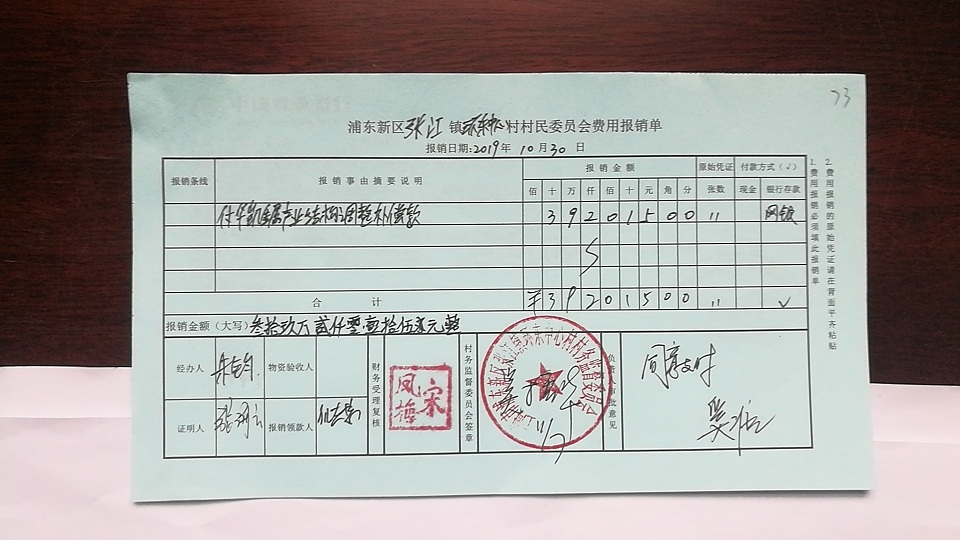 73
浦东新区张江镇环东中心村村民委员会费用报销单
报销日期:2019年10月30日
报销条线 报销事由摘要说明 报销金额 原始凭证 付款方式(√)
佰 十 万 仟 佰 十 元 角 分 张数 现金 银行存款
产业结构调整补偿款 3 9 2 0 1 5 0 0 " 网银
合计 ¥ 3 9 2 0 1 5 0 0 " √
报销金额(大写) 叁拾玖万贰仟零壹拾伍元整
经办人 物资验收人 财务受理复核 凤梅 宋 村务监督委员会签章 同意支付
证明人 报销领款人
1.费用报销必须填此报销单
2.费用报销的原始凭证请在背面平齐粘贴